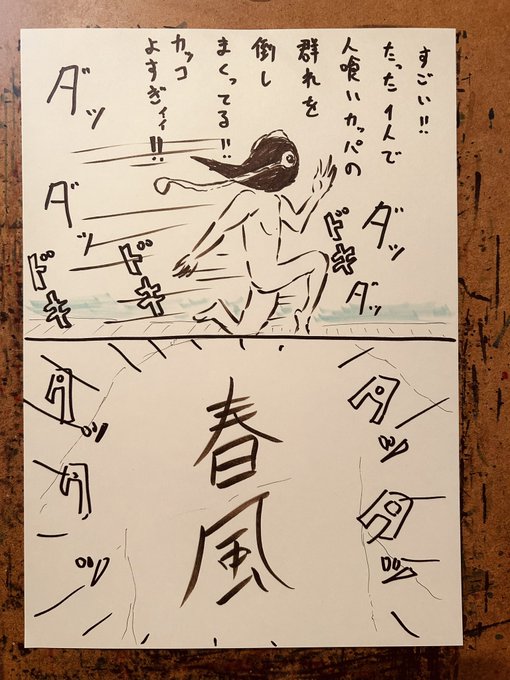 すごい!!
たった1人で
人喰いカッパの
群れを
倒し
まくってる!!
カッコ
よすぎィィ!!
ダッ
ダッ
ドキ
ダッ
ダッ
ドキ
ドキ
ダッ
ダッ
春風
ダッ
ダッ